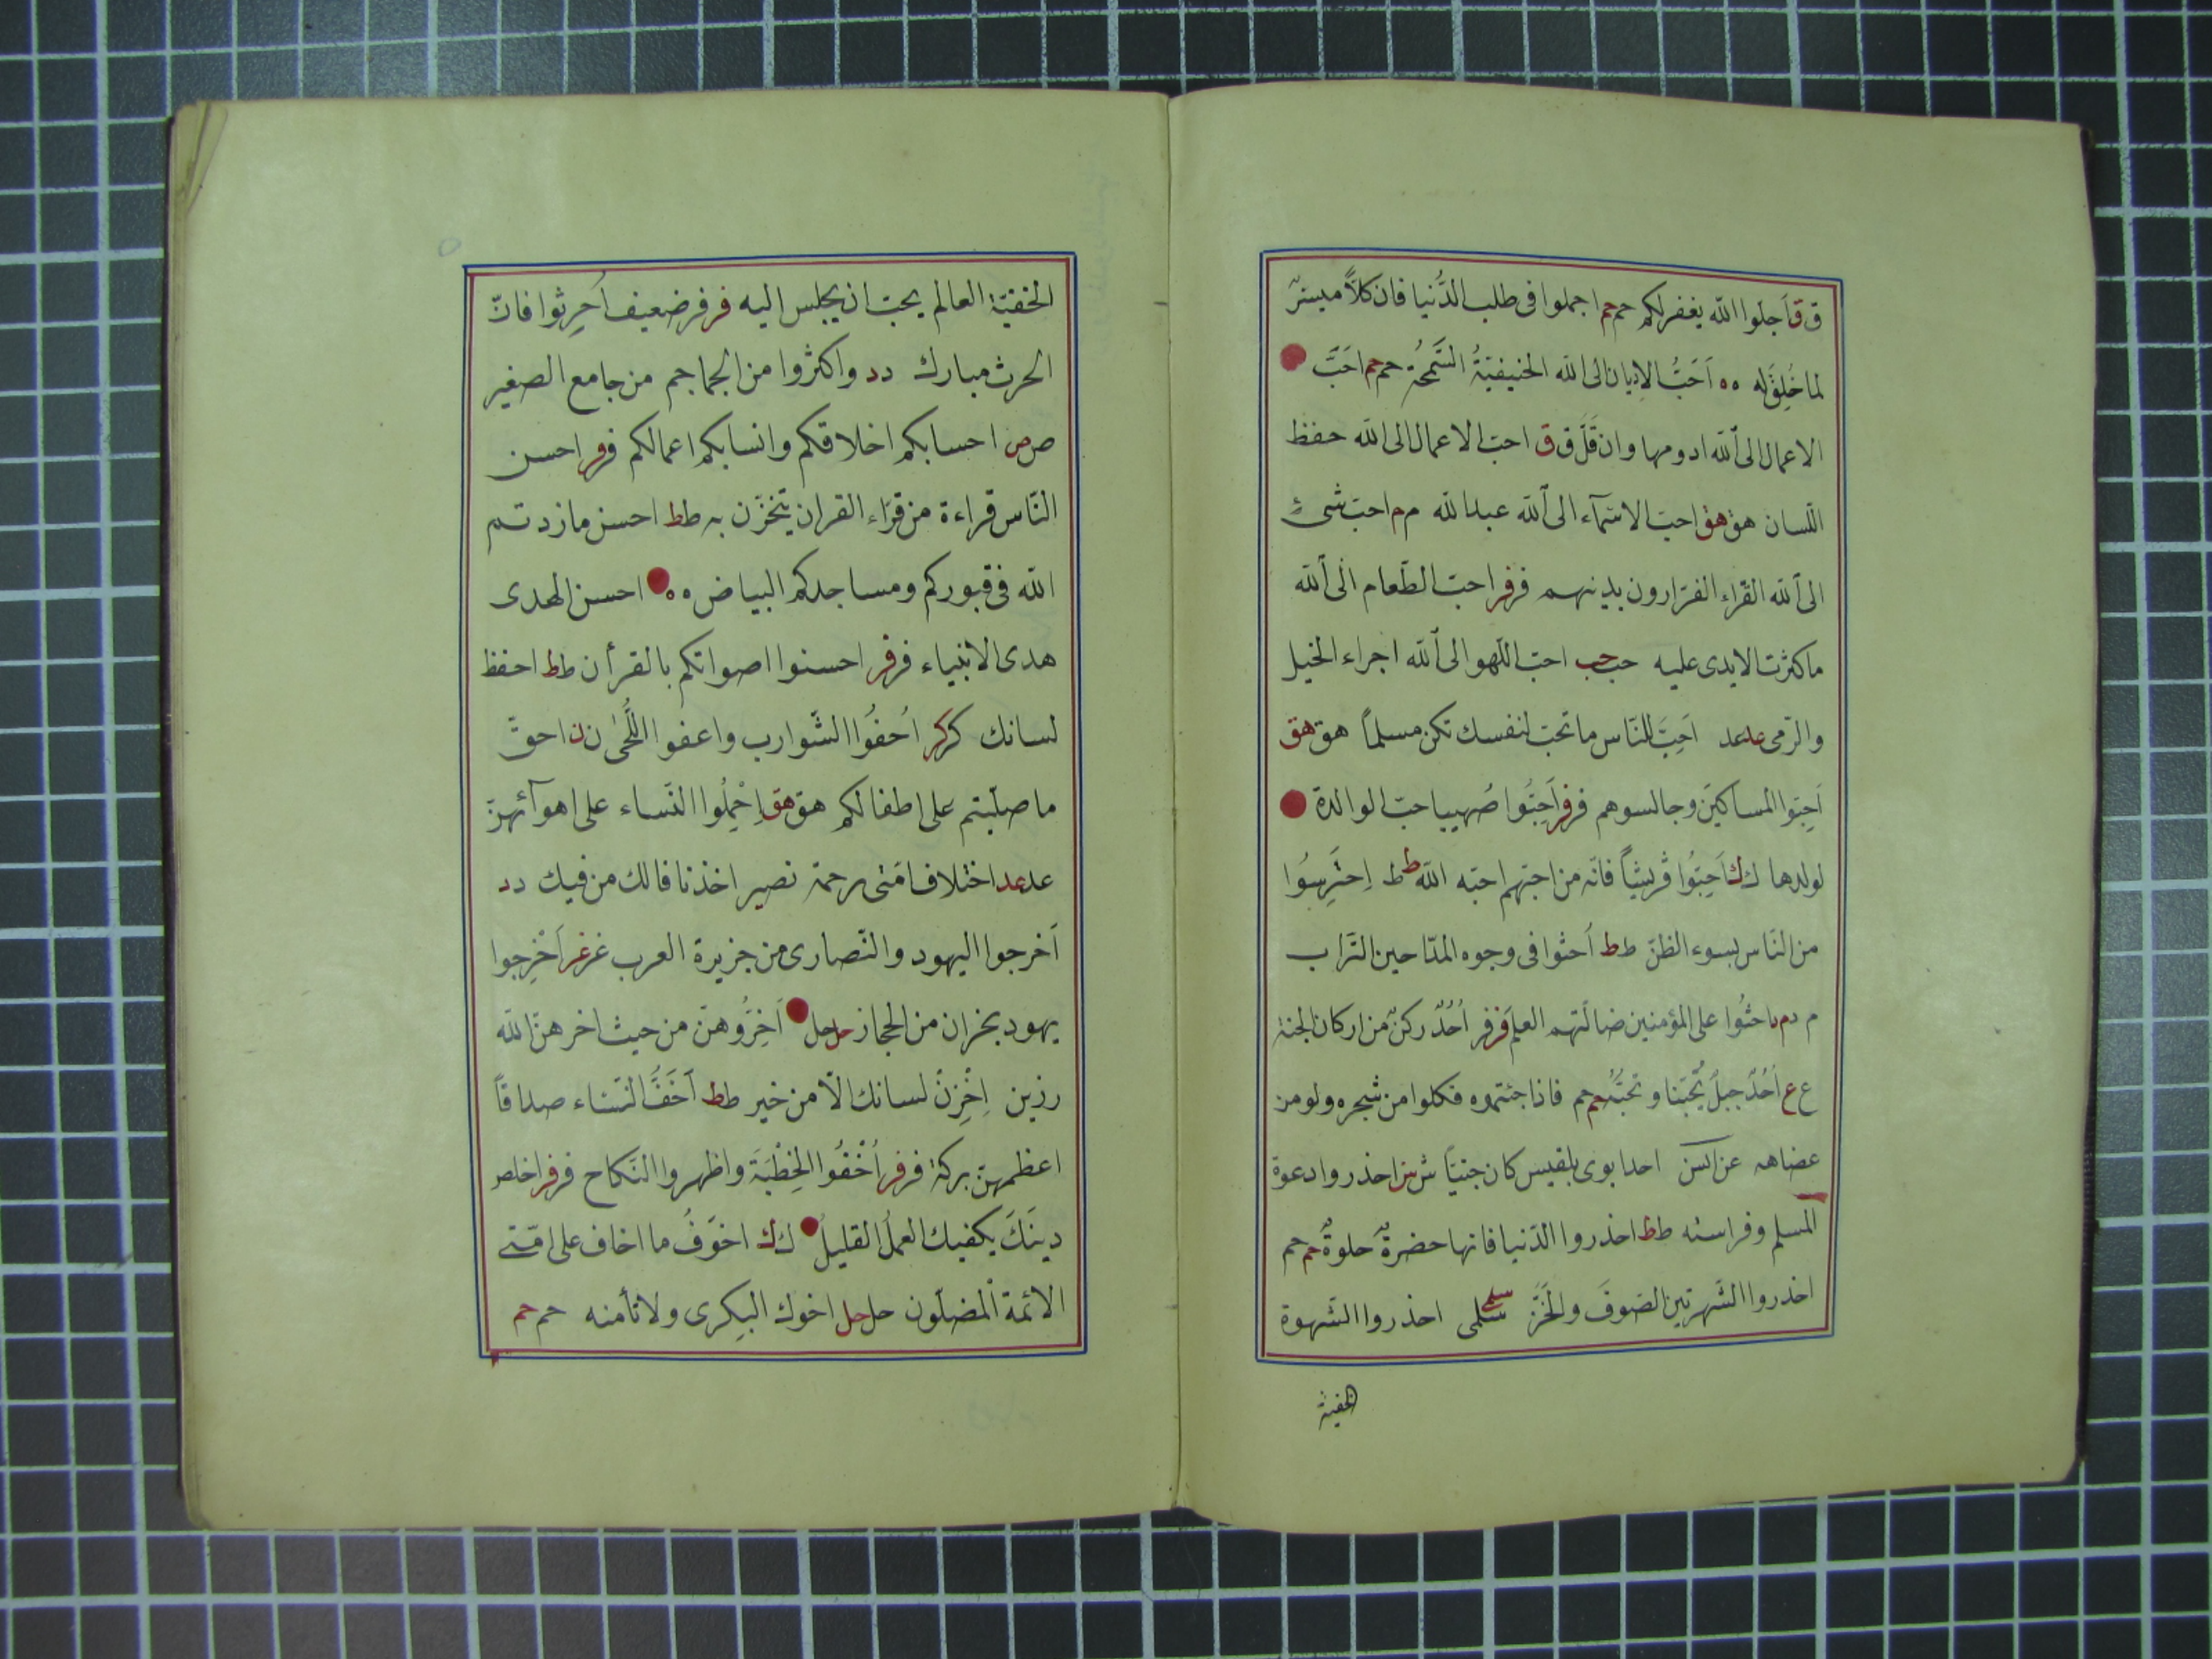 ق ق اَجلّوا الله يغفر لكم حم حم اجملوا فى طلب الدُّنيا فان كلاًّ ميسرٌ
لما خُلِقَ له ه ه اَحَبُّ الاديان الى الله الحنيفيّةُ السَّمْحَة حم حم احَبَّ
الاعمال الى الله ادومها وان قَلَّ ق ق احبّ الاعمال الى الله حفظ
اللّسان هق هق احبّ الاسمآء الى الله عبد الله م م احبّ شىءٍ
الى الله القرّاء الفرّارون بدينهم فر فر احبّ الطّعام الى الله
ما كثرت الايدى عليه حب حب احبّ اللّهو الى الله اجراء الخيل
والرّمى عد عد اَحِبَّ للنّاس ما تحبّ لنفسك تكن مسلماً هق هق
اَحِبّوا المساكينَ وجالسوهم فر فر اَحِبُّوا صُهيبا حبّ الوالدة
لولدها ك ك اَحِبُّوا قُريشاً فانّه من احبّهم احبّه الله ط ط اِحتَرِسُوا
من النّاس بسوء الظنّ ط ط اُحثوا فى وجوه المدّاحين التّراب
م د م د احثُوا على المؤمنين ضالّتهم العلم فر فر اُحُدٌ ركنٌ من اركان الجنة
ع ع اُحُدٌ جبلٌ يُحبّنا ونحبُّهُ حم حم فاذا جئتموه فكلوا من شجره ولو من
عضاهه عن انس احد ابوى بلقيس كان جنيّاً ش ش احذروا دعوة
المسلم وفراسته ط ط احذروا الدّنيا فانها خضرةٌ حلوةٌ حم حم
احذروا الشّهرتين الصّوفَ والخَزَّ سلمى سلمى احذروا الشّهوة
الخفية
الخفيّة العالم يحبّ ان يجلس اليه فر فر ضعيف اُحرِثوا فانّ
الحرث مبارك د د واكثروا من الجماجم من جامع الصغير
ص ص احسابكم اخلاقكم وانسابكم اعمالكم فر فر احسن
النّاس قراءة من قرّاء القران يتحزّن به ط ط احسن ما زدتم
الله فى قبوركم ومساجدكم البياض ه ه احسن الهدى
هدى الانبياء فر فر احسنوا اصواتكم بالقرأن ط ط احفظ
لسانك كر كر اُحفُوا الشّوارب واعفوا اللُّحىٰ ن ن احقّ
ما صلّيتم على اطفالكم هق هق اِحْمِلُوا النّساء على اهوآئهنّ
عد عد اختلاف امّتى رحمة نصير اخذنا فالك من فيك د د
اَخرجوا اليهود والنّصارى من جزيرة العرب غر غر اَخْرِجوا
يهود نجران من الحجاز حل حل اَخِّرُوهنّ من حيث اخرهنّ الله
رزين اِخْزِنْ لسانك الّا من خير ط ط اَخَفُّ النّساء صداقاً
اعظمهنّ بركة فر فر اُخْفُوا الخِطْبَةَ واظهروا النّكاح فر فر اخلص
دينَكَ يكفيك العملُ القليلُ ك ك اخوَفُ ما اخاف على امّتى
الائمة المضلّون حل حل اخوك البكرى ولا تأمنه حم حم